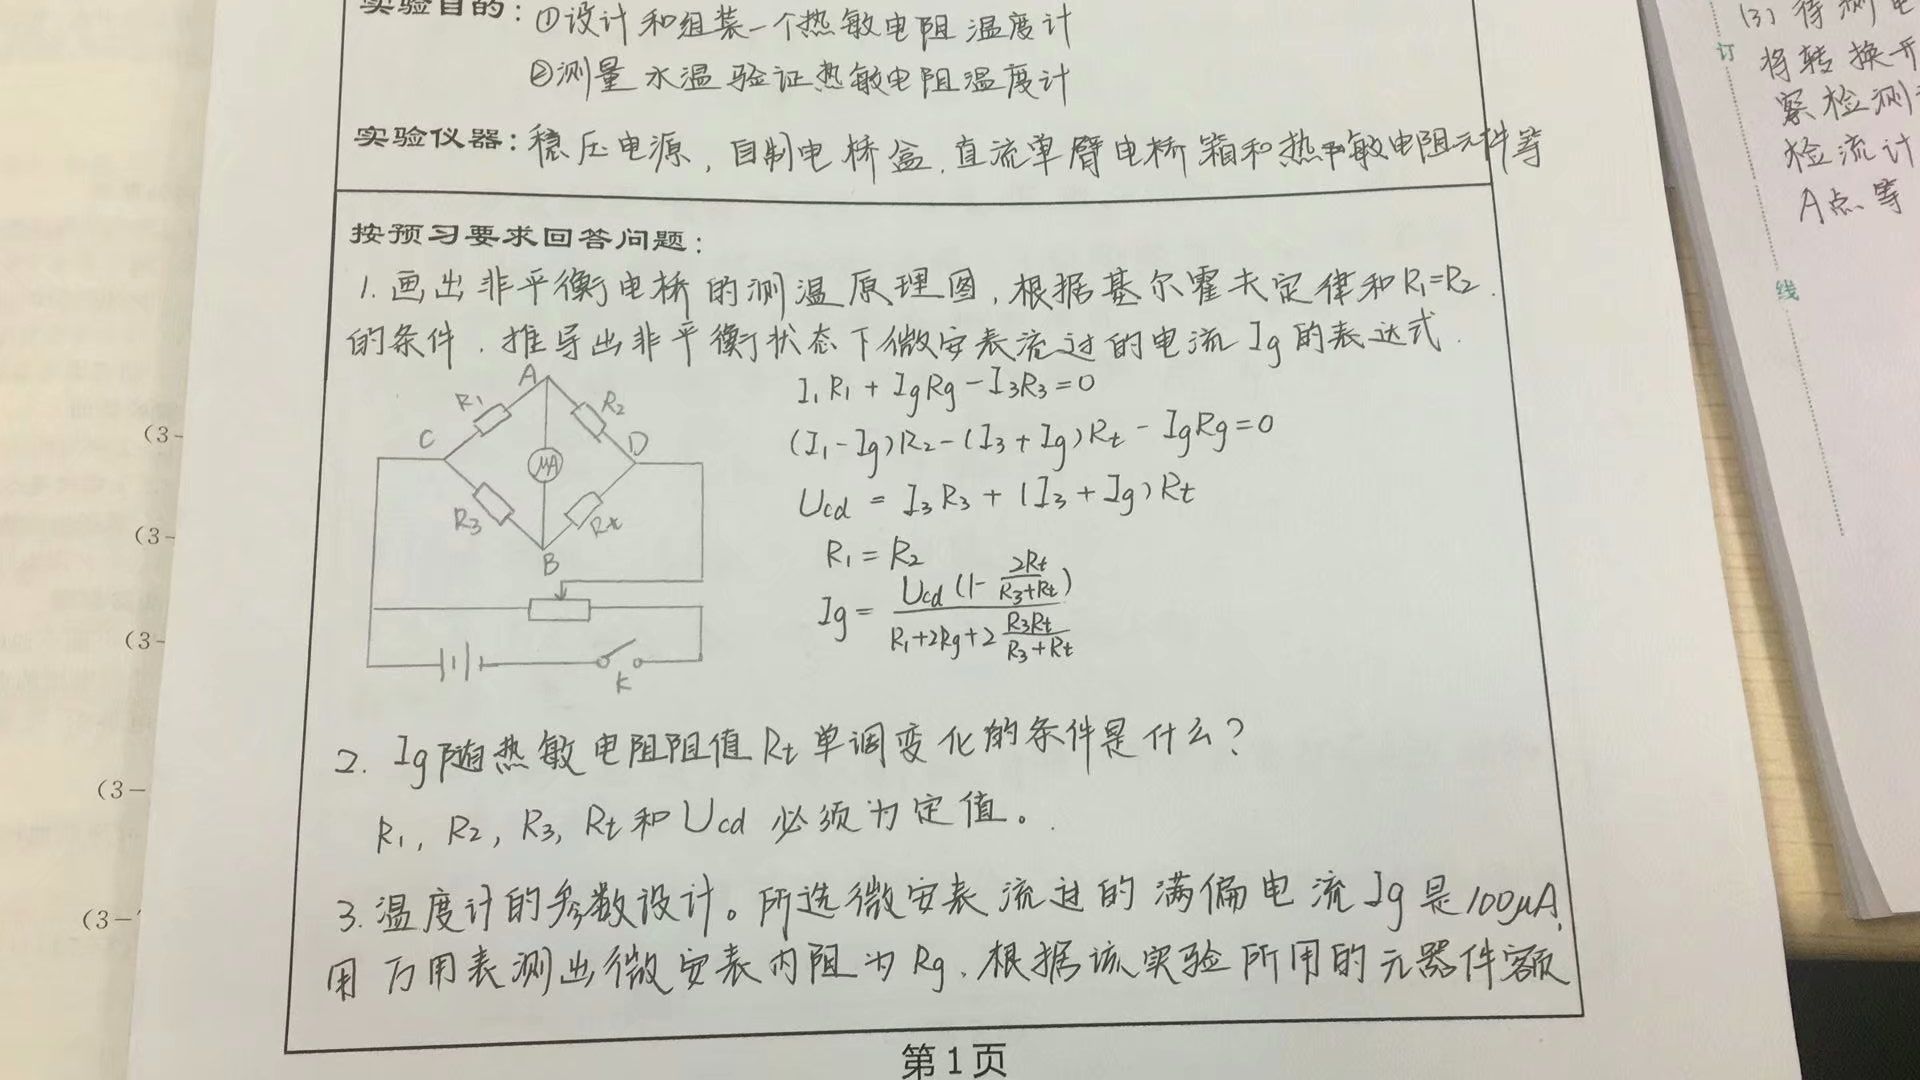 实验目的：①设计和组装一个热敏电阻温度计
②测量水温验证热敏电阻温度计
实验仪器：稳压电源，自制电桥盒，直流单臂电桥箱和热敏电阻元件等
按预习要求回答问题：
1. 画出非平衡电桥的测温原理图，根据基尔霍夫定律和R₁=R₂
的条件，推导出非平衡状态下微安表流过的电流Ig的表达式.
A
R₁
R₂
C
D
μA
R₃
Rt
B
K
I₁R₁ + IgRg - I₃R₃ = 0
(I₁-Ig)R₂ - (I₃+Ig)Rt - IgRg = 0
Ucd = I₃R₃ + (I₃+Ig)Rt
R₁ = R₂
Ig = Ucd(1 - 2Rt/(R₃+Rt)) / (R₁+2Rg+2 R₃Rt/(R₃+Rt))
2. Ig随热敏电阻阻值Rt单调变化的条件是什么？
R₁, R₂, R₃, Rt和Ucd必须为定值。
3. 温度计的参数设计。所选微安表流过的满偏电流Ig是100μA,
用万用表测出微安表内阻为Rg，根据该实验所用的元器件额
第1页
(3-
(3-
(3-
(3-
(3-
订
线
(3) 待测电
将转换开
察检测
检流计
A点等